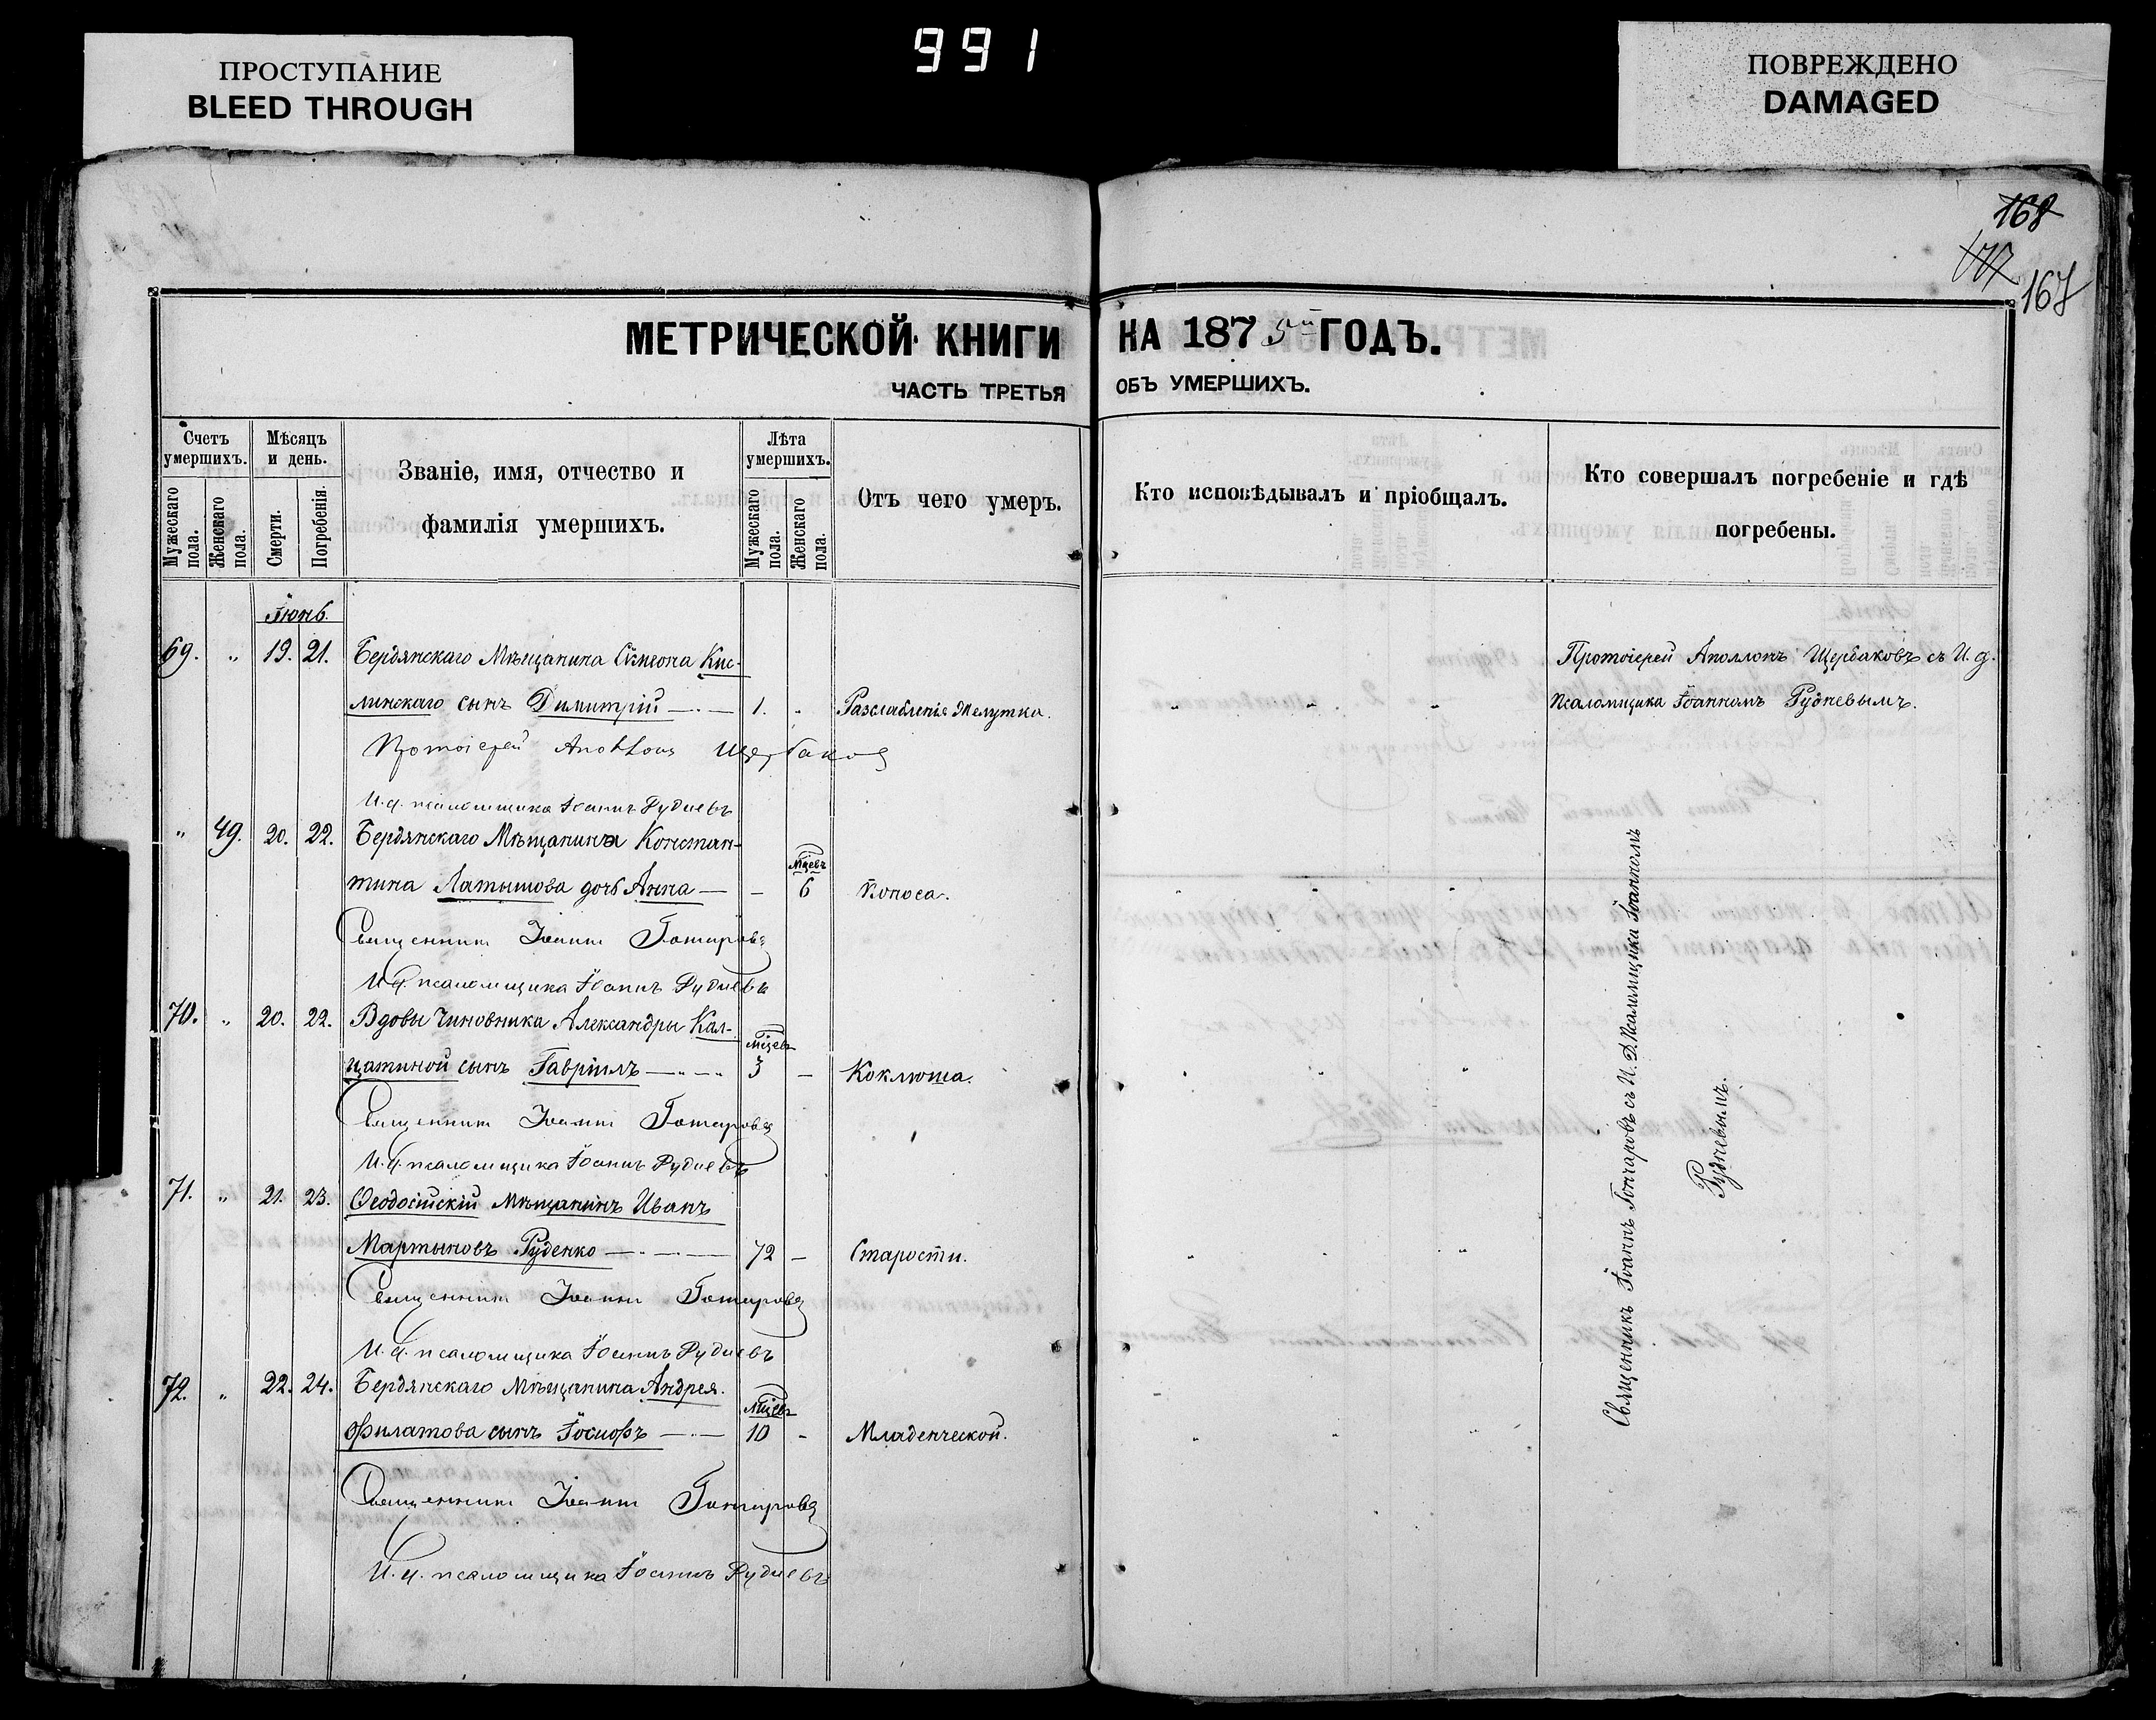 991
ПРОСТУПАНИЕ
BLEED THROUGH
ПОВРЕЖДЕНО
DAMAGED
168
167
МЕТРИЧЕСКОЙ КНИГИ НА 1875й ГОДЪ.
ЧАСТЬ ТРЕТЬЯ ОБЪ УМЕРШИХЪ.
Счетъ умершихъ.
Мужескаго пола.
Женскаго пола.
Мѣсяцъ и день.
Смерти.
Погребенія.
Званіе, имя, отчество и
фамилія умершихъ.
Лѣта умершихъ.
Мужескаго пола.
Женскаго пола.
Отъ чего умеръ.
Кто исповѣдывалъ и пріобщалъ.
Кто совершалъ погребеніе и гдѣ
погребены.
Іюнь.
69. " 19. 21. Бердянскаго Мѣщанина Сѵмеона Кис-
линскаго сынъ Димитрій 1. " Разслабленія Желутка.
Протоіерей Аполлонъ Щербаковъ съ И. д.
Псаломщика Іоанномъ Рудневымъ.
Протоіерей Аполлонъ Щербаковъ
И. д. псаломщика Іоаннъ Рудневъ
" 49. 20. 22. Бердянскаго Мѣщанина Констан-
тина Латышова дочь Анна — – Мцевъ 6 Поноса.
Священникъ Іоаннъ Гончаровъ
И. д. псаломщика Іоаннъ Рудневъ
70. " 20. 22. Вдовы Чиновника Александры Кал-
цатиной сынъ Гавріилъ Мцевъ 3 – Коклюша.
Священникъ Іоаннъ Гончаровъ
И. д. псаломщика Іоаннъ Рудневъ
71. " 21. 23. Ѳеодосійскій Мѣщанинъ Иванъ
Мартыновъ Руденко 72 – Старости.
Священникъ Іоаннъ Гончаровъ
И. д. псаломщика Іоаннъ Рудневъ
72. " 22. 24. Бердянскаго Мѣщанина Андрея
Филатова сынъ Іосифъ Мцевъ 10 - Младенческой.
Священникъ Іоаннъ Гончаровъ
И. д. псаломщика Іоаннъ Рудневъ
Священникъ Іоаннъ Гончаровъ съ И. Д. Псаломщика Іоанномъ
Рудневымъ.